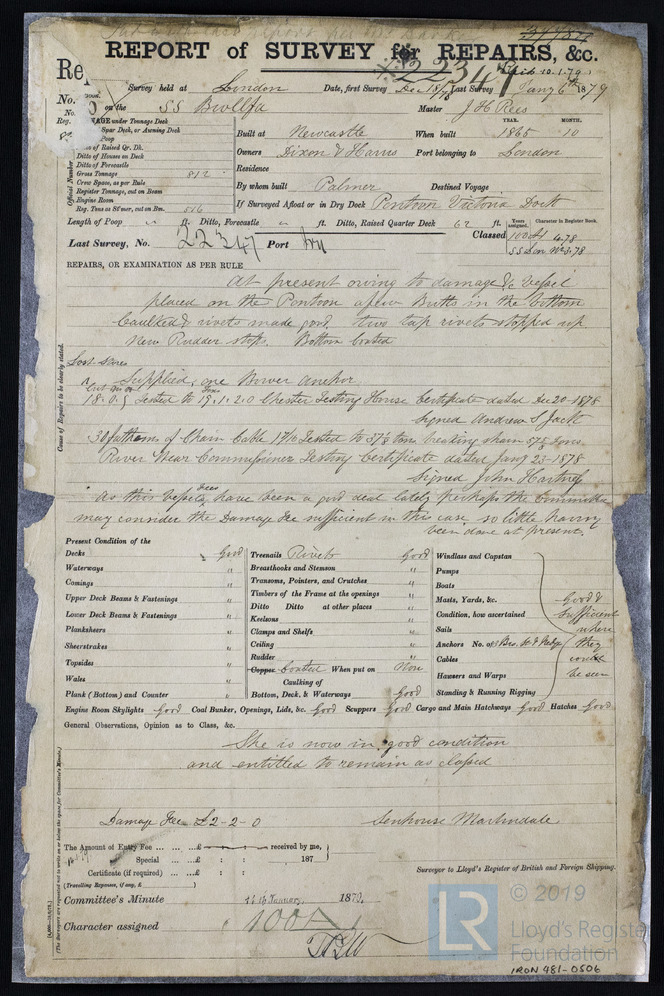 REPORT of SURVEY for REPAIRS, &c.
22347
Recd 10.1.79
No. Survey held at London Date, first Survey Dec 18/78 Last Survey Jany 6th 1879
on the SS Master J H Rees
TONNAGE under Tonnage Deck
Ditto of Spar Deck, or Awning Deck
Ditto of Poop
Ditto of Raised Qr. Dk.
Ditto of Houses on Deck
Ditto of Forecastle
Gross Tonnage 812
Crew Space, as per Rule
Register Tonnage, cut on Beam
Engine Room
Reg. Tons as St'mer, cut on Bm. 516
Official Number
YEAR. MONTH.
Built at Newcastle When built 1865 10
Owners Dixon & Harris Port belonging to London
Residence
By whom built Palmer Destined Voyage
If Surveyed Afloat or in Dry Dock Pontoon Victoria Dock
Length of Poop " ft. Ditto, Forecastle " ft. Ditto, Raised Quarter Deck 62 ft.
Years assigned. Character in Register Book.
Last Survey, No. 22347 Port Classed 100A1 4.78
SS Lon No 3.78
REPAIRS, OR EXAMINATION AS PER RULE
At present owing to damage &c Vessel
placed on the Pontoon a few Butts in the bottom
Caulked & rivets made good, two tap rivets stopped up
New Rudder stops. Bottom Coated
Lost
Supplied, one Bower anchor
Cwt qrs lbs Tons
18.0.5 Tested to 19.1.2.0 Chester Testing House Certificate dated Dec 20-1878
Signed Andrew S Jack
30 fathoms of Chain Cable 1 7/16 Tested to breaking strain tons
River Wear Commissioners Testing Certificate dated Jany 23-1878
Signed John Hartness
As this Vessels Fees have been a good deal lately perhaps the Committee
may consider the Damage Fee sufficient in this case so little having
been done at present.
Cause of Repairs to be clearly stated.
Present Condition of the
Decks Good
Waterways "
Comings "
Upper Deck Beams & Fastenings "
Lower Deck Beams & Fastenings "
Planksheers "
Sheerstrakes "
Topsides "
Wales "
Plank (Bottom) and Counter "
Treenails Rivets Good
Breasthooks and Stemson "
Transoms, Pointers, and Crutches "
Timbers of the Frame at the openings "
Ditto Ditto at other places "
Keelsons "
Clamps and Shelfs "
Ceiling "
Rudder "
Copper Coated When put on Now
Caulking of
Bottom, Deck, & Waterways Good
Windlass and Capstan
Pumps
Boats
Masts, Yards, &c.
Condition, how ascertained
Sails
Anchors No. of
Cables
Hawsers and Warps
Standing & Running Rigging
Good &
sufficient
where
they
could
be seen
Engine Room Skylights Good Coal Bunker, Openings, Lids, &c. Good Scuppers Good Cargo and Main Hatchways Good Hatches Good
General Observations, Opinion as to Class, &c.
She is now in good condition
and entitled to remain as classed
Damage Fee £2-2-0 Senhouse Martindale
The Amount of Entry Fee ... ... ...£ received by me,
Special ... ...£ : : , 187
Certificate (if required) ... ...£ : :
(Travelling Expenses, if any, £ )
Surveyor to Lloyd's Register of British and Foreign Shipping.
Committee's Minute 14th January, 1879.
Character assigned 100A
(The Surveyors are requested not to write on or below the space for Committee's Minute.)
LR
© 2019
Lloyd's Register
Foundation
IRON 481-0506